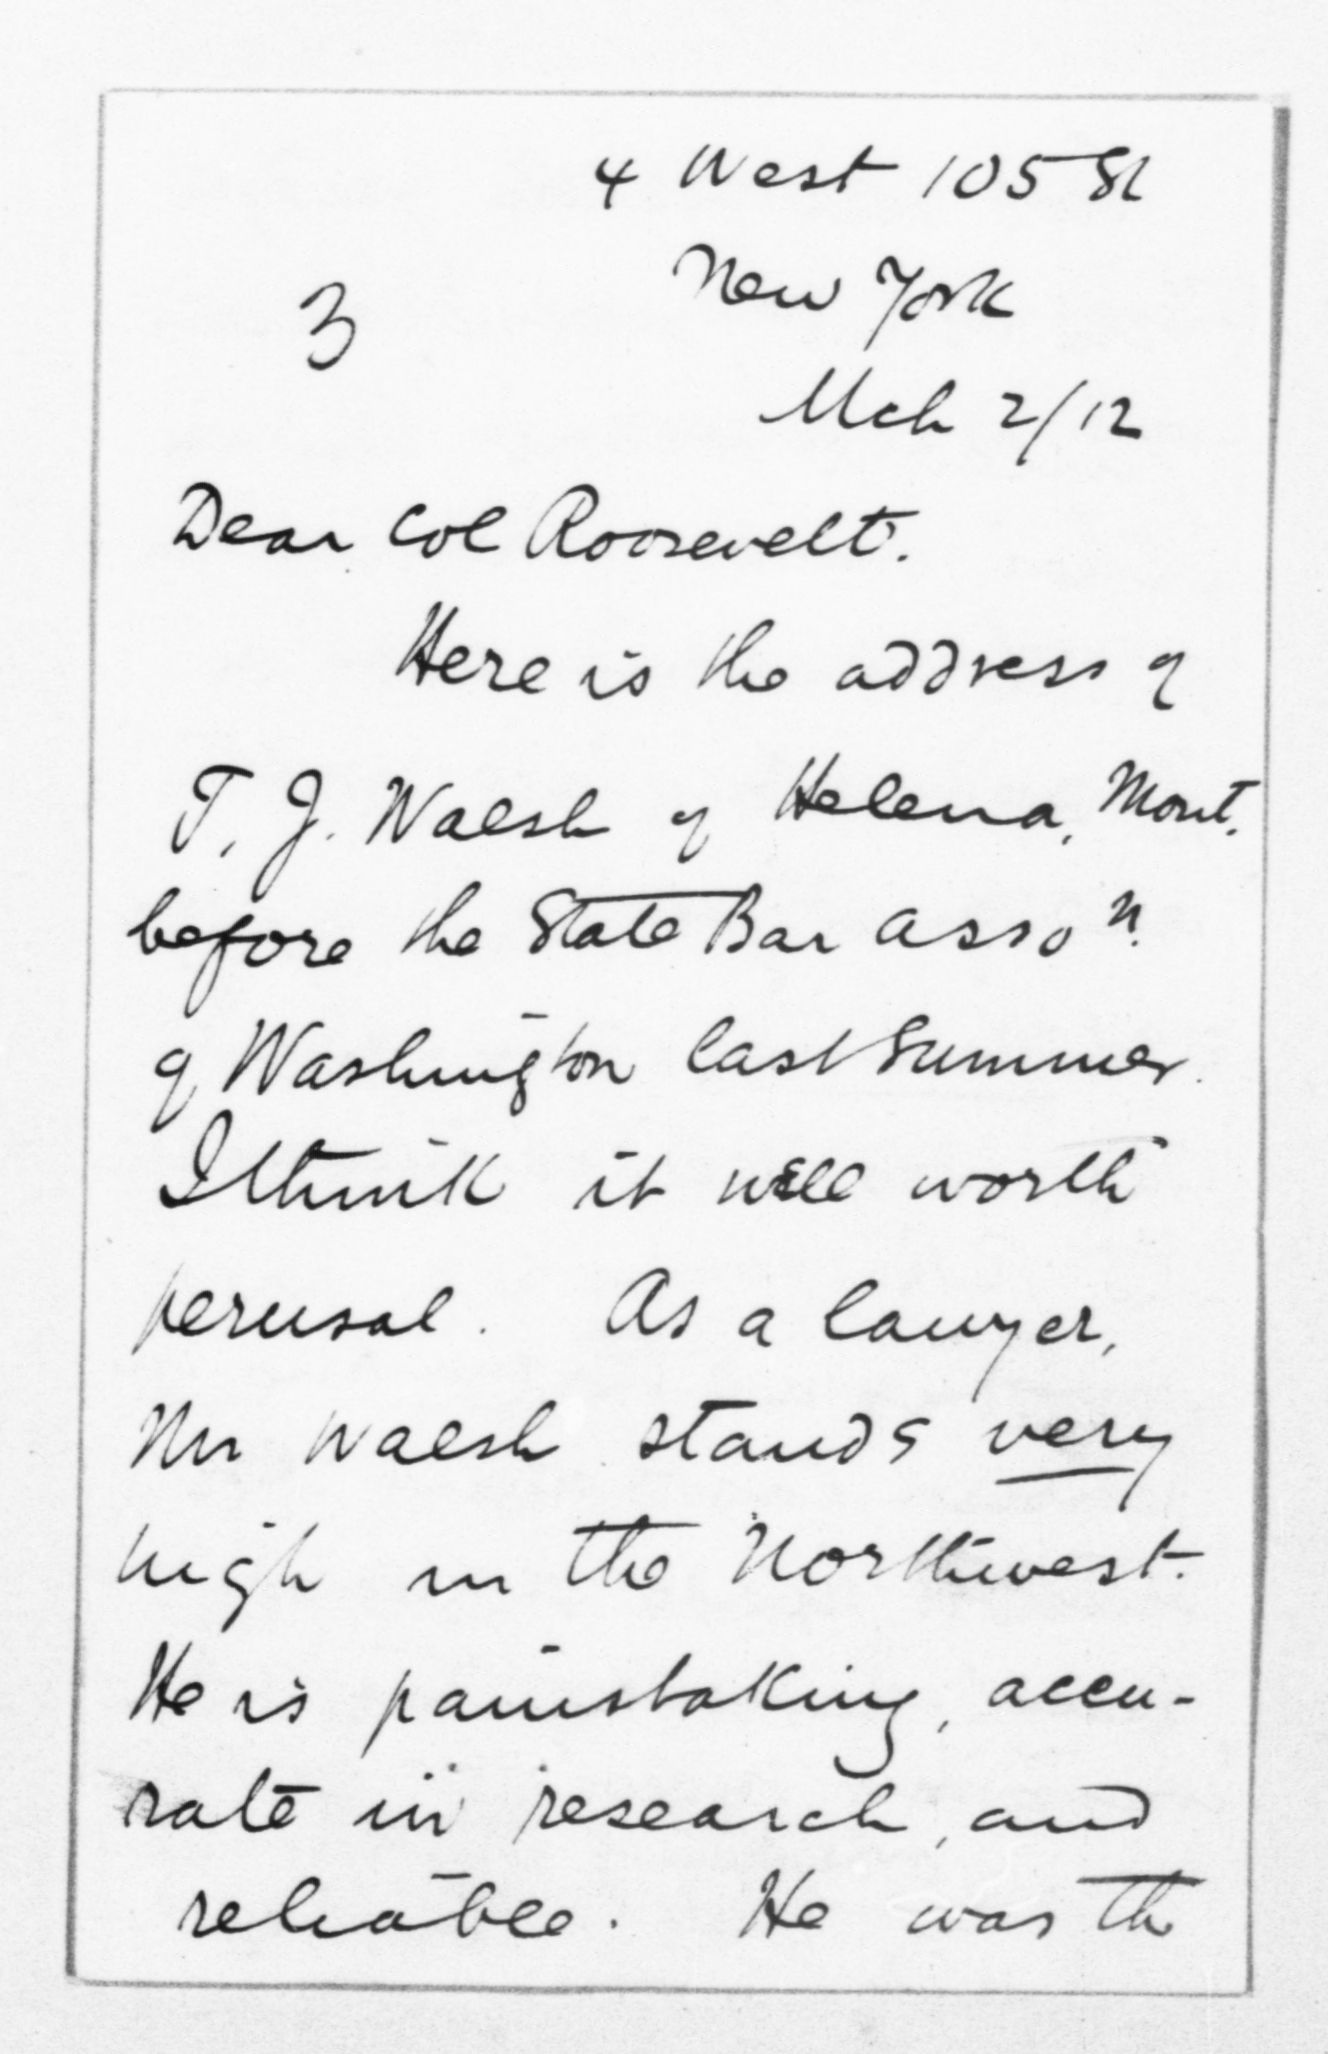 4 West 105 St
New York
3
Mch 2/12
Dear Col Roosevelt.
Here is the address of
T. J. Walsh of Helena, Mont.
before the State Bar Asson.
of Washington last Summer.
I think it well worth
perusal. As a lawyer,
Mr Walsh stands very
high in the Northwest.
He is painstaking, accu-
rate in research, and
reliable. He was th